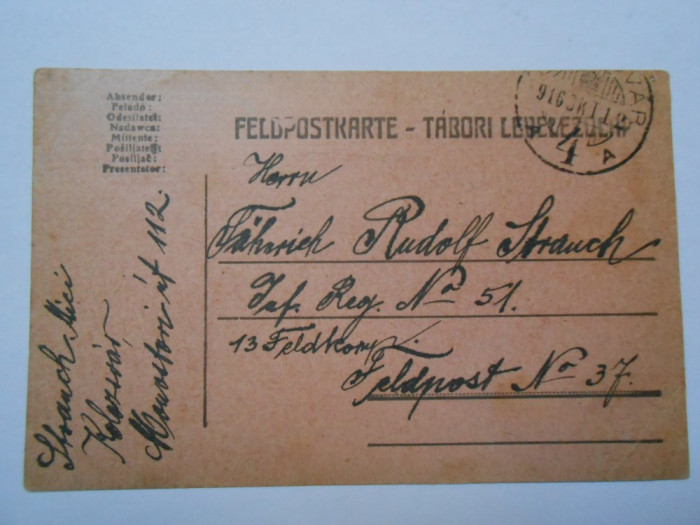 Absender:
Feladó:
Odesílatel:
Nadawca:
Mittente:
Pošiljatelj:
Pošiljač:
Presentator:
FELDPOSTKARTE - TÁBORI LEVELEZŐLAP
916 OKT
4
A
Herrn
Fähnrich Rudolf Strauch
Inf. Reg. No 51.
13 Feldkomp.
Feldpost No 37.
Strauch Mici
Kolozsvár
Monostori út 112.